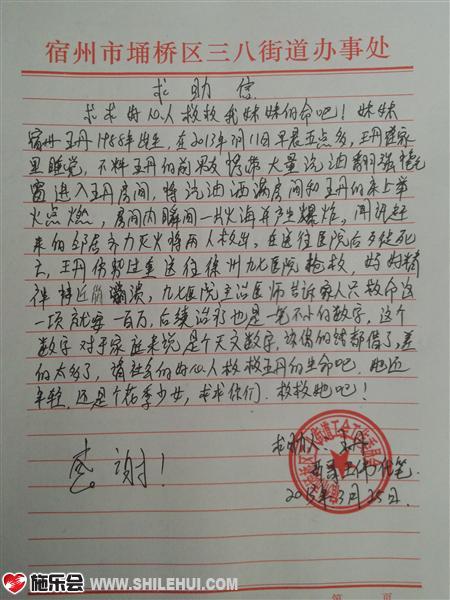 宿州市埇桥区三八街道办事处
求助信
求求好心人救救我妹妹的命吧！妹妹
宿州王丹1988年出生，在2013年3月11日早晨五点多，王丹在家
里睡觉，不料王丹的前男友携带大量汽油翻强撬
窗进入王丹房间，将汽油洒满房间和王丹的床上举
火点燃，房间内瞬间一片火海并产生爆炸，闻讯赶
来的邻居齐力灭火将两人救出，在送往医院后歹徒死
亡，王丹伤势过重送往徐州九七医院抢救，妈妈精
神接近崩溃，九七医院主治医师告诉家人只救命这
一项就要一百万，后续治疗也是一笔不小的数字，这个
数字对于家庭来说是个天文数字，该借的钱都借了，差
的太多了，请社会的好心人救救王丹的生命吧，她还
年轻，还是个花季少女，求求你们，救救她吧！
感谢！
求助人：王丹
代笔
2013年3月25日
施乐会 www.SHILEHUI.com
第 页